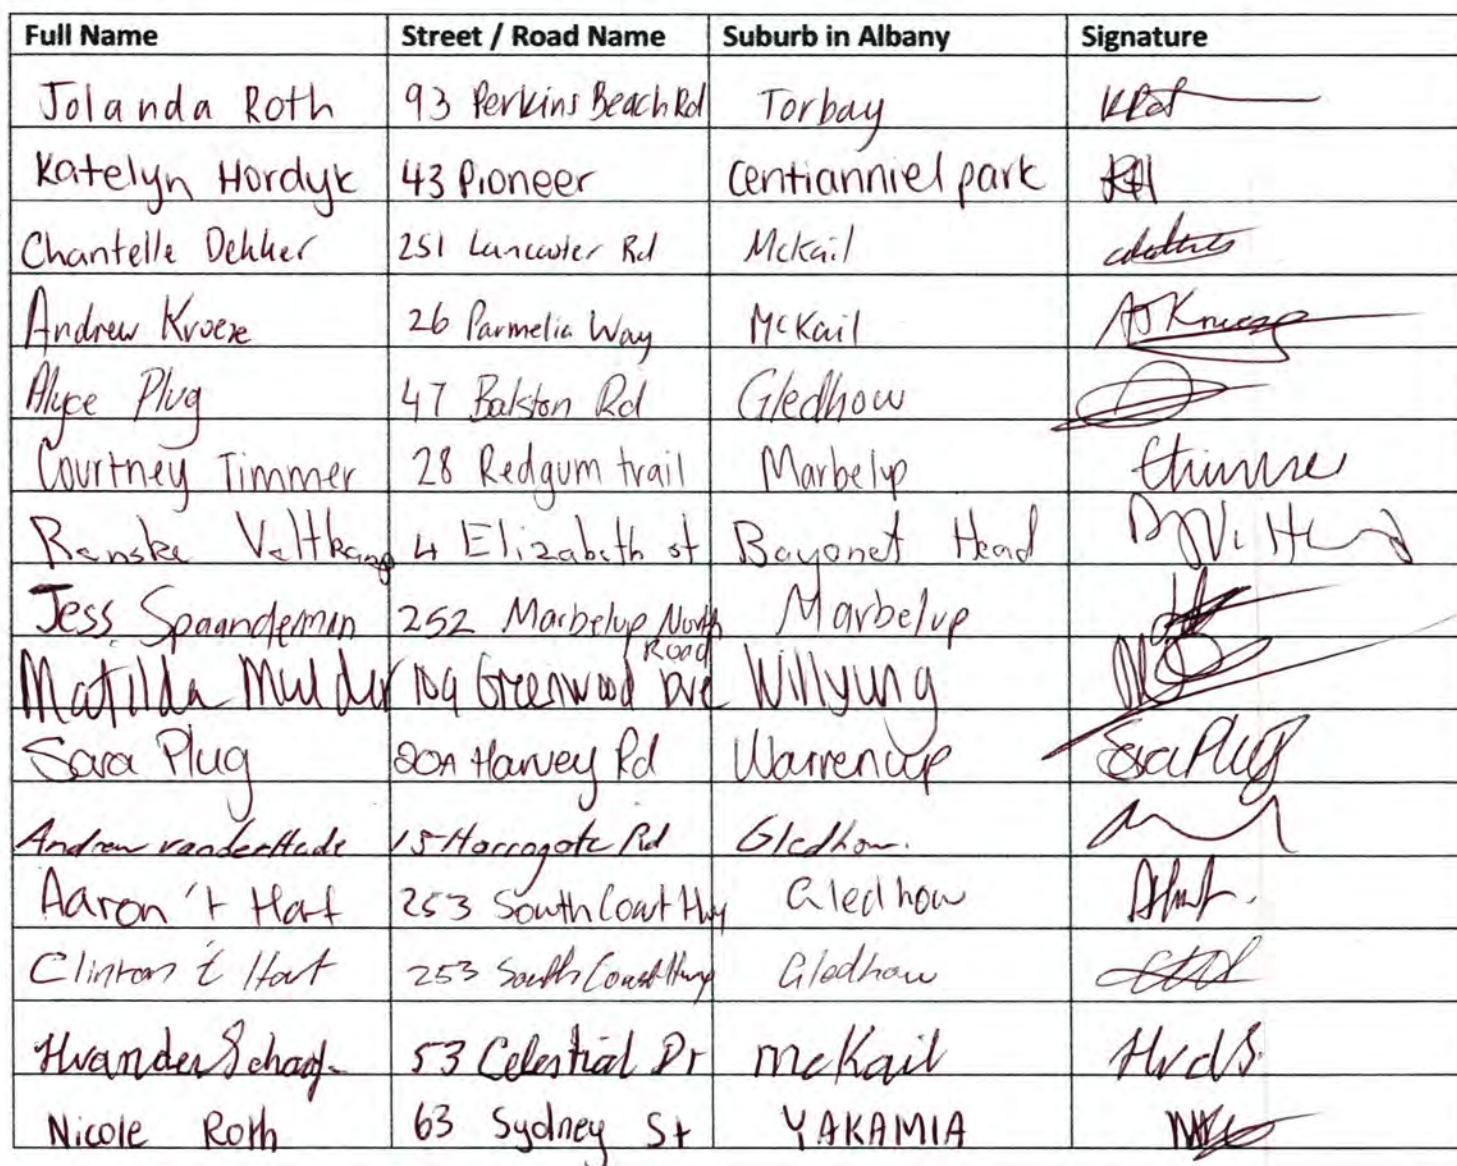 Full Name Street / Road Name Suburb in Albany Signature
Jolanda Roth 93 Perkins Beach Rd Torbay
Katelyn Hordyk 43 Pioneer Centianniel park KH
Chantelle Dekker 251 Lancaster Rd McKail
Andrew Kroeze 26 Parmelia Way McKail
Alyce Plug 47 Balston Rd Gledhow
Courtney Timmer 28 Redgum trail Marbelup
Renske Veltkamp 4 Elizabeth st Bayonet Head
Jess Spaanderman 252 Marbelup North Marbelup
Road
Matilda Mulder Greenwood Dve Willyung
Sara Plug 20A Harvey Rd Warrenup Sara Plug
Andrew 15 Harrogate Rd Gledhow.
Aaron 't Hart 253 South Coast Hwy Gledhow
Clinton 't Hart 253 South Coast Hwy Gledhow
53 Celestial Dr McKail HvdS.
Nicole Roth 63 Sydney St YAKAMIA